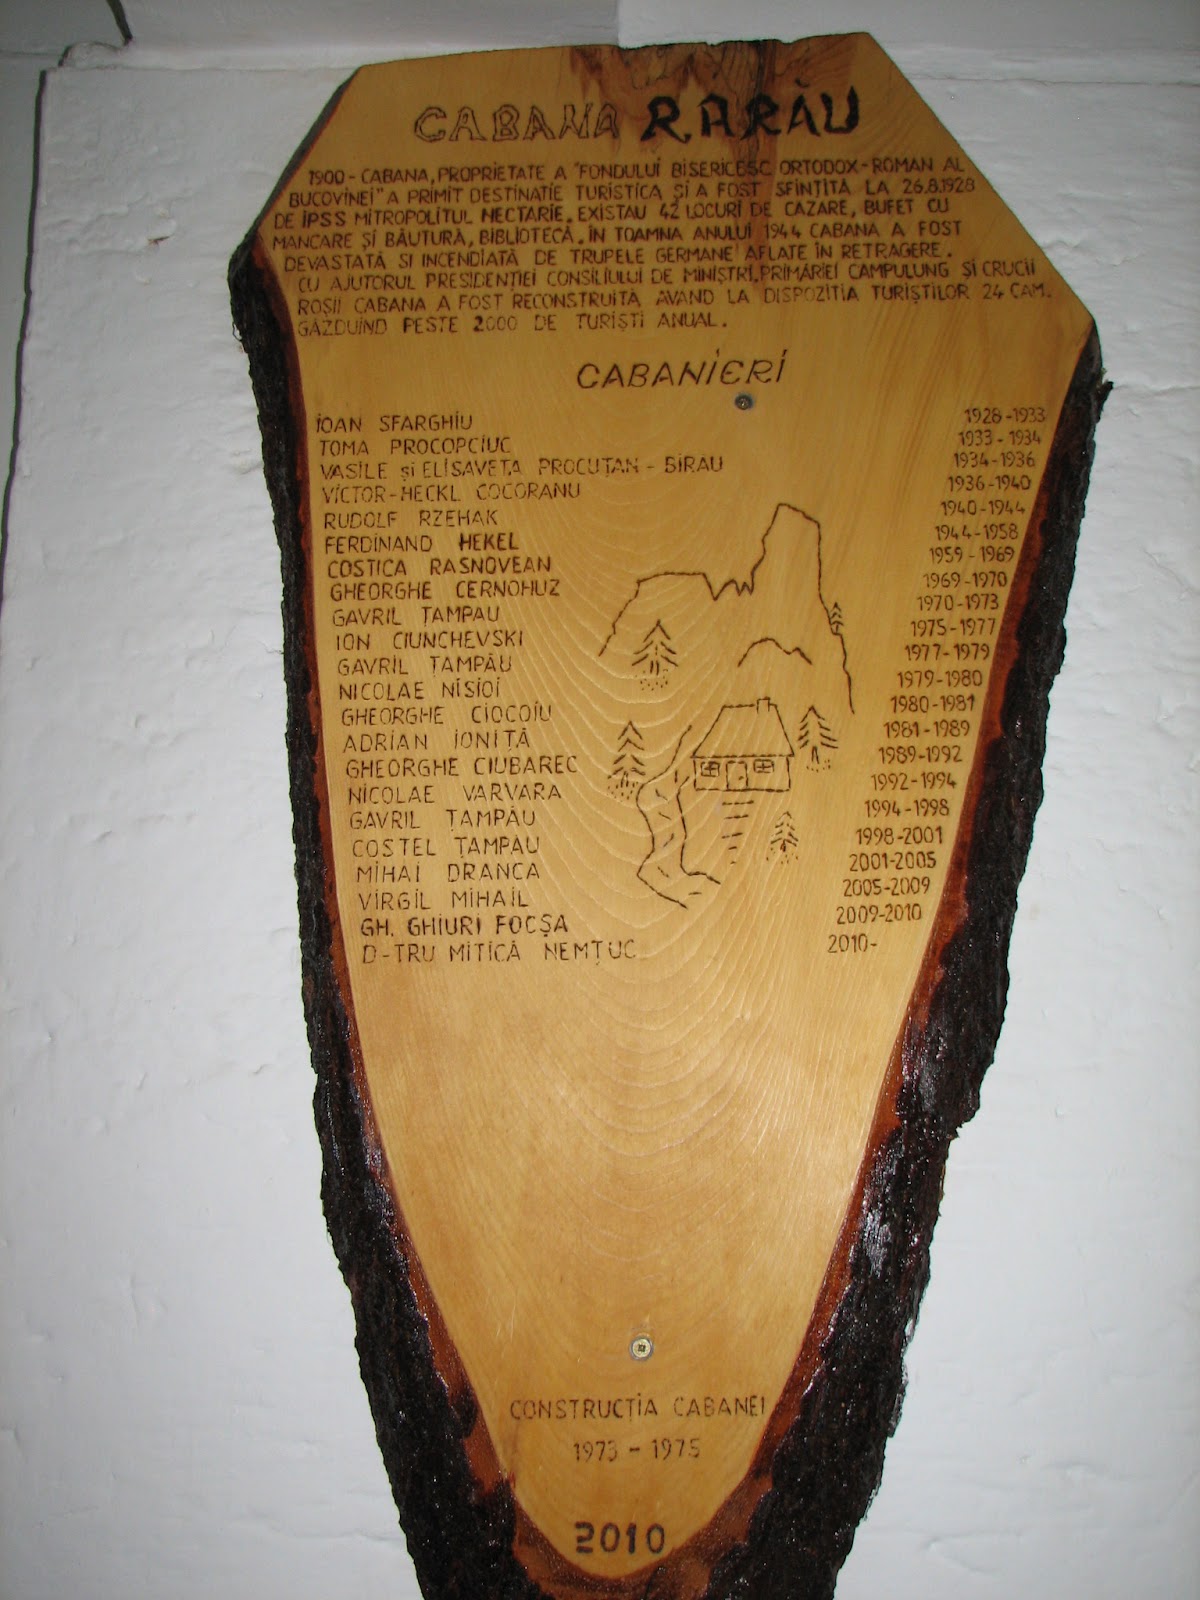 CABANA RARĂU
1900 - CABANA, PROPRIETATE A "FONDULUI BISERICESC ORTODOX - ROMAN AL
BUCOVINEI" A PRIMIT DESTINATIE TURISTICA ȘI A FOST SFINȚITĂ LA 26.8.1928
DE IPSS MITROPOLITUL NECTARIE. EXISTAU 42 LOCURI DE CAZARE, BUFET CU
MANCARE ȘI BĂUTURĂ, BIBLIOTECĂ. ÎN TOAMNA ANULUI 1944 CABANA A FOST
DEVASTATĂ SI INCENDIATĂ DE TRUPELE GERMANE AFLATE ÎN RETRAGERE.
CU AJUTORUL PRESIDENȚIEI CONSILIULUI DE MINIȘTRI, PRIMĂRIEI CAMPULUNG ȘI CRUCII
ROȘII CABANA A FOST RECONSTRUITĂ AVAND LA DISPOZITIA TURIȘTILOR 24 CAM.
GĂZDUIND PESTE 2000 DE TURIȘTI ANUAL.
CABANIERI
IOAN SFARGHIU 1928-1933
TOMA PROCOPCIUC 1933-1934
VASILE și ELISAVETA PROCUȚAN - BIRAU 1934-1936
VICTOR-HECKL COCORANU 1936-1940
RUDOLF RZEHAK 1940-1944
FERDINAND HEKEL 1944-1958
COSTICA RASNOVEAN 1959-1969
GHEORGHE CERNOHUZ 1969-1970
GAVRIL ȚAMPAU 1970-1973
ION CIUNCHEVSKI 1975-1977
GAVRIL ȚAMPĂU 1977-1979
NICOLAE NISIOI 1979-1980
GHEORGHE CIOCOIU 1980-1981
ADRIAN IONIȚĂ 1981-1989
GHEORGHE CIUBAREC 1989-1992
NICOLAE VARVARA 1992-1994
GAVRIL ȚAMPĂU 1994-1998
COSTEL ȚAMPĂU 1998-2001
MIHAI DRANCA 2001-2005
VIRGIL MIHAIL 2005-2009
GH. GHIURI FOCȘA 2009-2010
D-TRU MITICĂ NEMȚUC 2010-
CONSTRUCȚIA CABANEI
1973 - 1975
2010